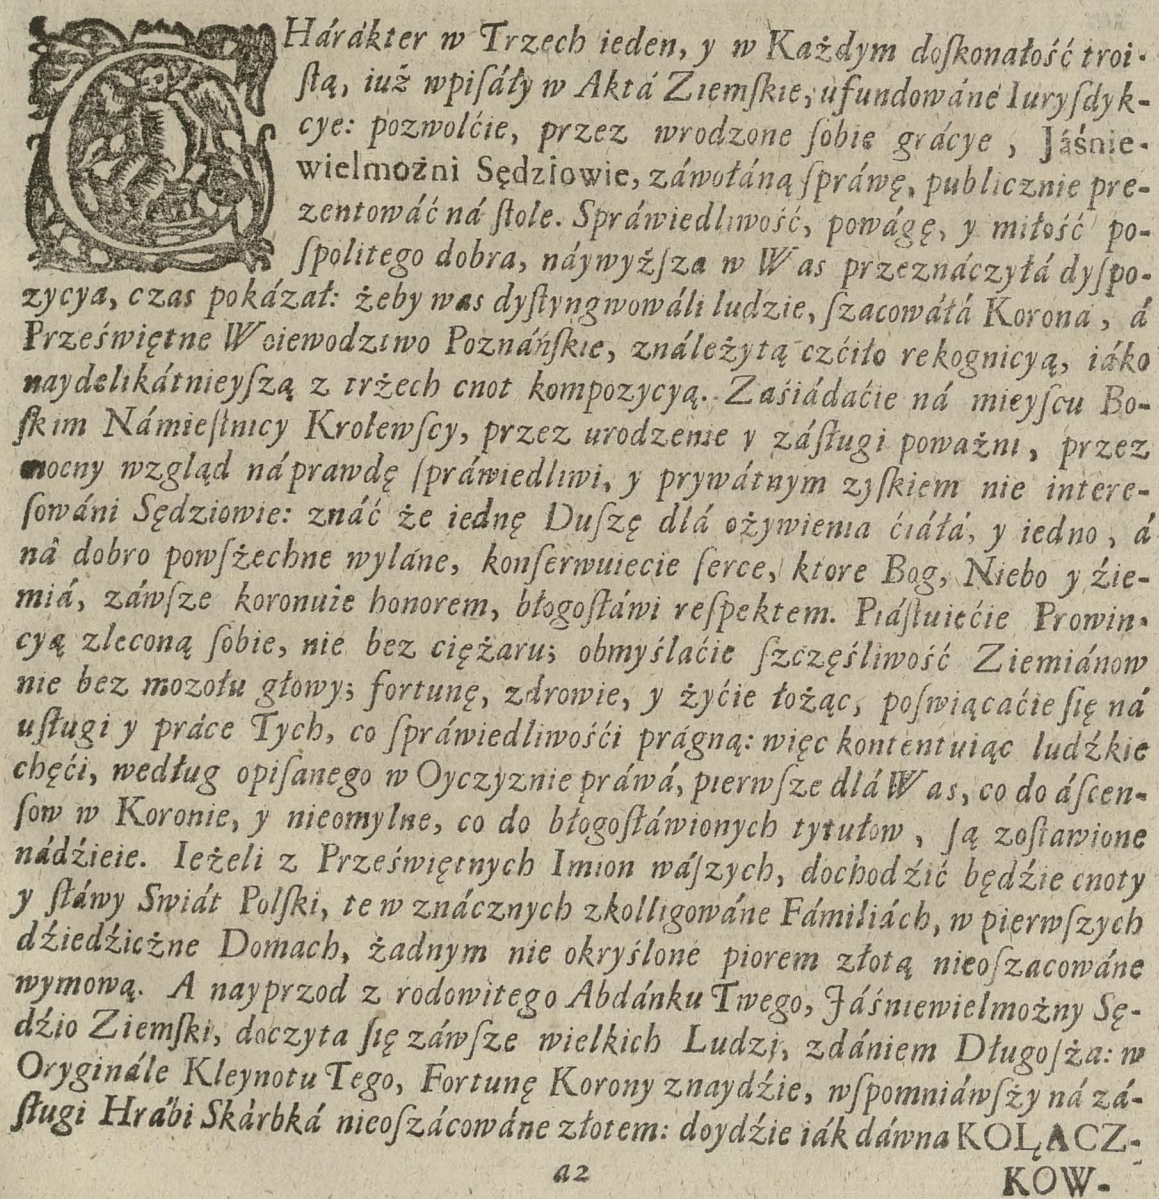 CHárákter w Trzech ieden, y w Każdym doſkonałość troi-
ſtą, iuż wpiſáły w Aktá Ziemſkie, ufundowáne Iuryſdyk-
cye: pozwolćie, przez wrodzone ſobie grácye, Jáśnie-
wielmożni Sędziowie, záwołáną ſpráwę, publicznie pre-
zentowáć ná ſtole. Spráwiedliwość, powágę, y miłość po-
ſpolitego dobra, náywyżſza w Was przeznáczyłá dyſpo-
zycya, czas pokázał: żeby was dyſtyngwowáli ludzie, ſzacowáłá Korona, á
Przeświętne Woiewodztwo Poznáńſkie,ználeżytą czćiło rekognicyą, iáko
naydelikátnieyſzą z trżech cnot kompozycyą. Zaśiádaćie ná mieyſcu Bo-
ſkim Námieſtnicy Krolewſcy, przez urodzenie y záſługi poważni, przez
mocny wzgląd náprawdę ſpráwiedliwi, y prywátnym zyſkiem nie intere-
ſowáni Sędziowie: znáć że iednę Duſzę dlá ożywienia ćiáłá, y iedno, á
ná dobro powſżechne wyláne, konſerwuiecie ſerce, ktore Bog, Niebo y źie-
miá, záwſze koronuie honorem, błogoſłáwi reſpektem. Piáſtuiećie Prowin-
cyą zleconą ſobie, nie bez ciężaru; obmyślaćie ſzczęśliwość Ziemiánow
nie bez mozołu głowy; fortunę, zdrowie, y życie łożąc, poſwiącaćie ſię ná
uſługi y práce Tych, co ſpráwiedliwośći prágną: więc kontentuiąc ludźkie
chęći, według opiſanego w Oyczyznie práwá, pierwſze dlá Was, co do áſcen-
ſow w Koronie, y nieomylne, co do błogoſłáwionych tytułow, ſą zoſtawione
nádźieie. Ieżeli z Przeświętnych Imion wáſzych, dochodźić będźie cnoty
y ſłáwy Swiát Polſki, te w znácznych zkolligowáne Fámiliách, w pierwſzych
dźiedźicżne Domach, żadnym nie okryślone piorem złotą nieoſzacowáne
wymową. A nayprzod z rodowitego Abdánku Twego, Jáśniewielmożny Sę-
dźio Ziemſki, doczyta ſię záwſze wielkich Ludzi, zdániem Długoſża: w
Oryginále Kleynotu Tego, Fortunę Korony znaydźie, wſpomniáwſży ná zá-
ſługi Hrábi Skárbká nieoſzácowáne złotem: doydźie iák dáwna KOLĄCZ-
a2
KOW-